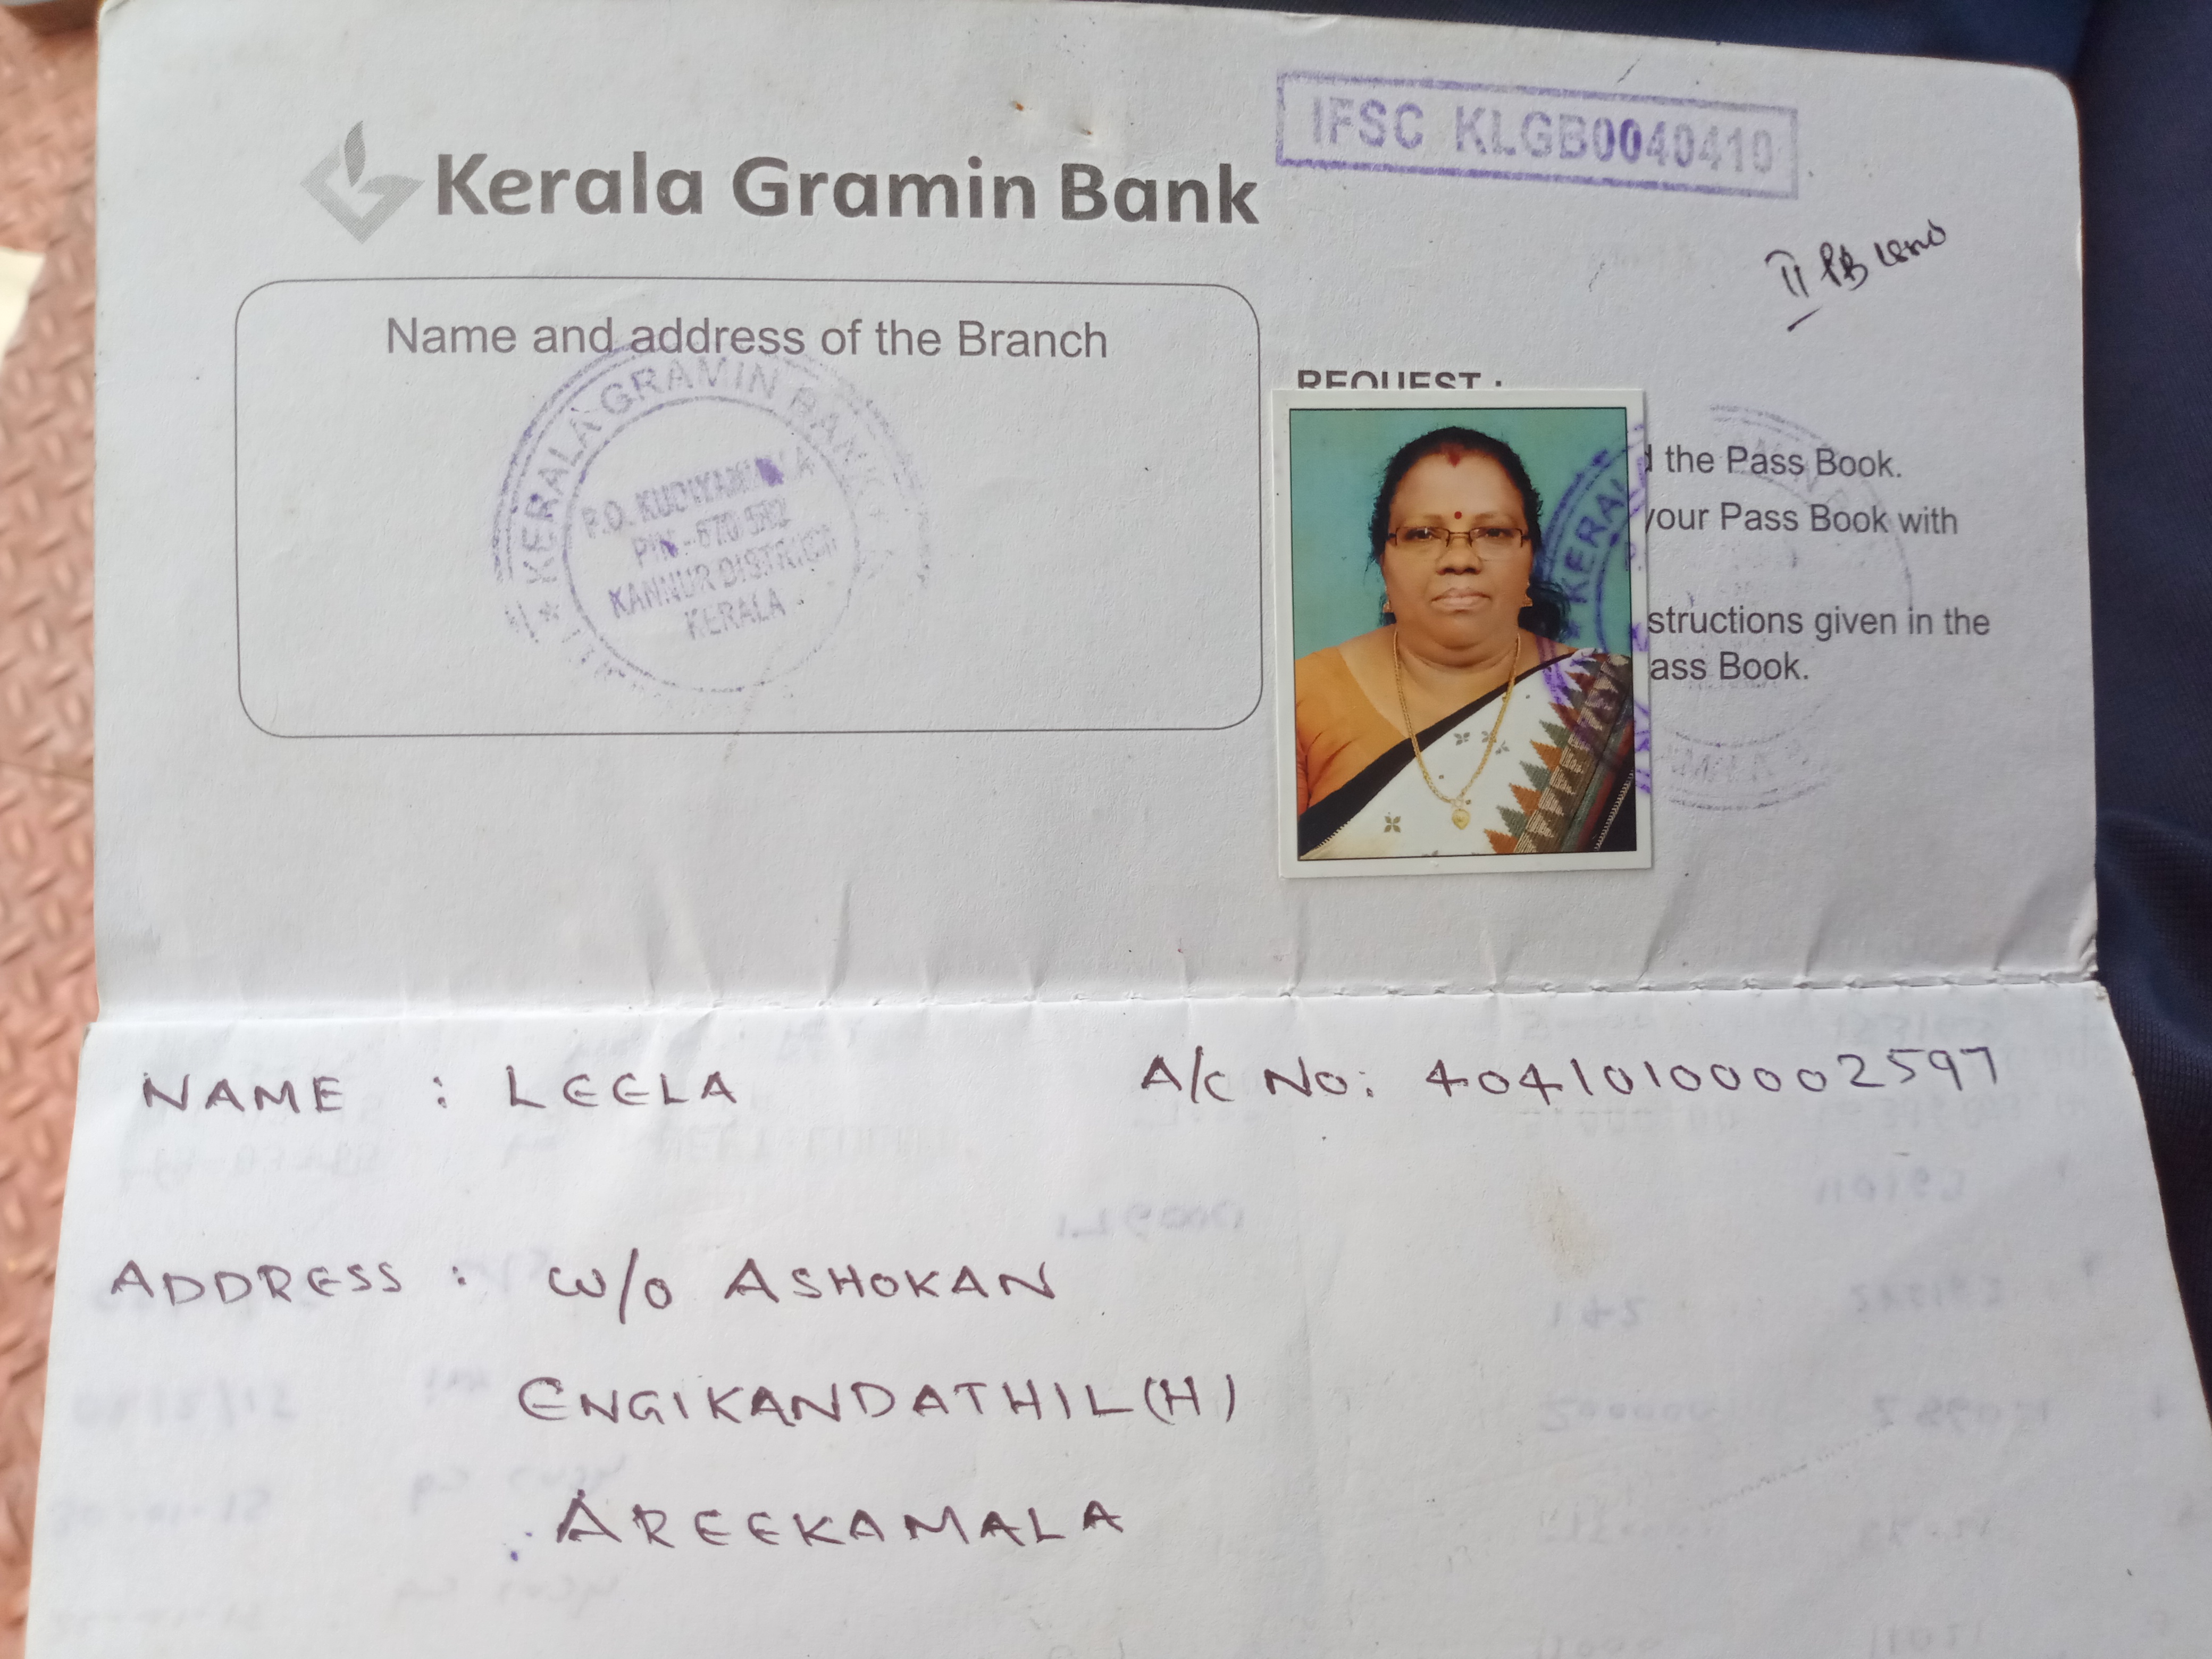 IFSC KLGB0040410
Kerala Gramin Bank
II PB
Name and address of the Branch
KERALA GRAMIN BANK
P.O. KUDIYANMALA
PIN - 670 582
KANNUR DISTRICT
KERALA
REQUEST :
the Pass Book.
your Pass Book with
structions given in the
ass Book.
KERAL
NAME : LEELA
A/C NO: 40410101000002597
ADDRESS : W/O ASHOKAN
ENGIKANDATHIL(H)
AREEKAMALA